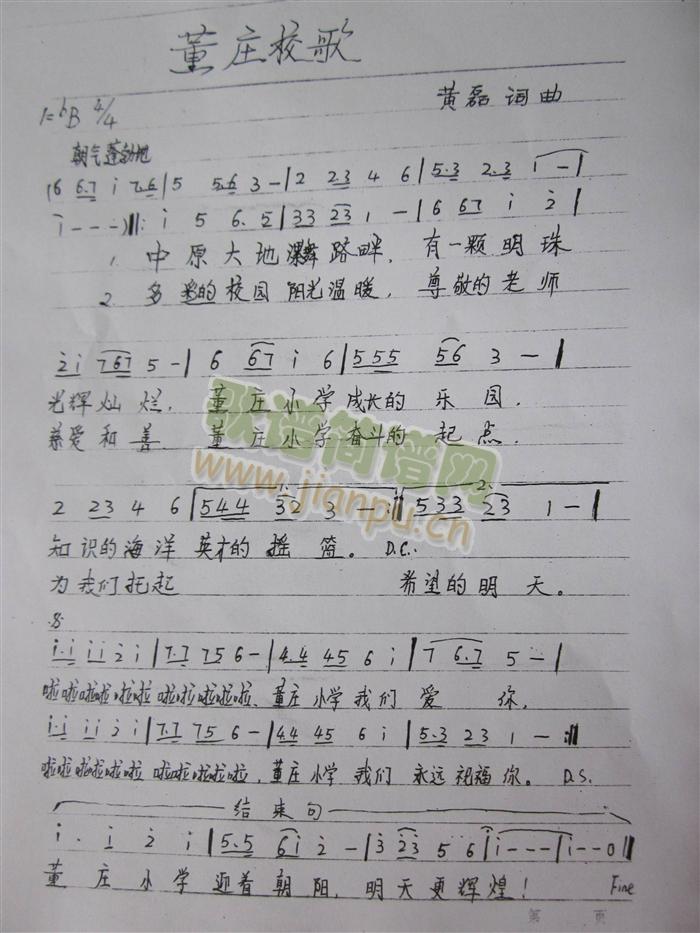 董庄校歌
1=♭B 4/4
黄磊 词曲
朝气蓬勃地
(6 6.7 i 7.6 | 5 5.6 3 - | 2 2.3 4 6 | 5.3 2.3 i - |
i - - -) ‖: i 5 6.5 | 33 23 1 - | 6 67 i 2 |
1 中原大地 路畔, 有一颗明珠
2 多彩的校园 阳光温暖, 尊敬的老师
2i 767 5 - | 6 67 i 6 | 555 56 3 - |
光辉灿烂, 董庄小学成长的乐园,
慈爱和善 董庄小学奋斗的起点,
1. 2.
2 23 4 6 | 544 32 3 - :‖ 533 23 1 - |
知识的海洋 英才的摇篮。 D.C.
为我们托起 希望的明天。
i.i ii 2 i | 7.7 75 6 - | 4.4 45 6 i | 7 6.7 5 - |
啦啦啦啦啦啦 啦啦啦啦啦, 董庄小学我们爱你,
i.i ii 2 i | 7.7 75 6 - | 4.4 45 6 i | 5.3 23 1 - :‖
啦啦啦啦啦啦 啦啦啦啦啦, 董庄小学我们永远祝福你。 D.S.
结束句
i. i 2 i | 5.5 6i 2 - | 3 23 5 6 | i - - - | i - - 0 ‖
董庄小学迎着朝阳, 明天更辉煌! Fine
第 页
歌谱简谱网
www.jianpu.cn